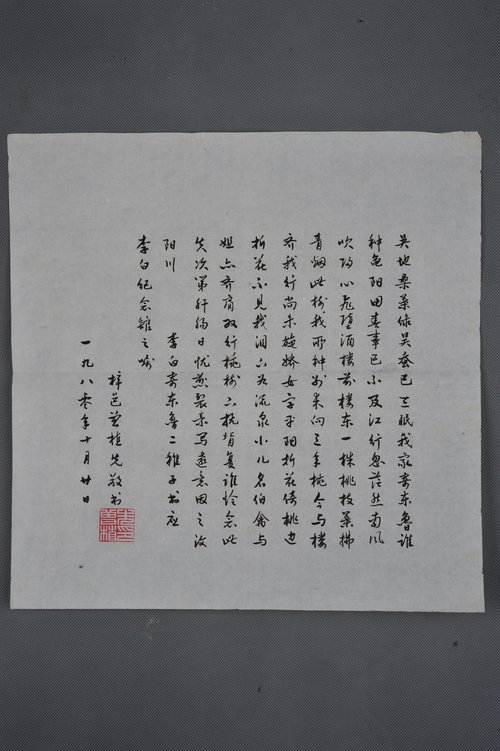 吴地桑叶绿吴蚕已三眠我家寄东鲁谁
种龟阴田春事已不及江行忽茫然南风
吹归心飞堕酒楼前楼东一株桃枝叶拂
青烟此树我所种别来向三年桃今与楼
齐我行尚未旋娇女字平阳折花倚桃边
折花不见我泪下如流泉小儿名伯禽与
姐亦齐肩双行桃树下抚背复谁怜念此
失次第肝肠日忧煎裂素写远意因之汶
阳川
李白寄东鲁二稚子书应
李白纪念馆之嘱
梓邑曾植先敬书
一九八零年十月廿日